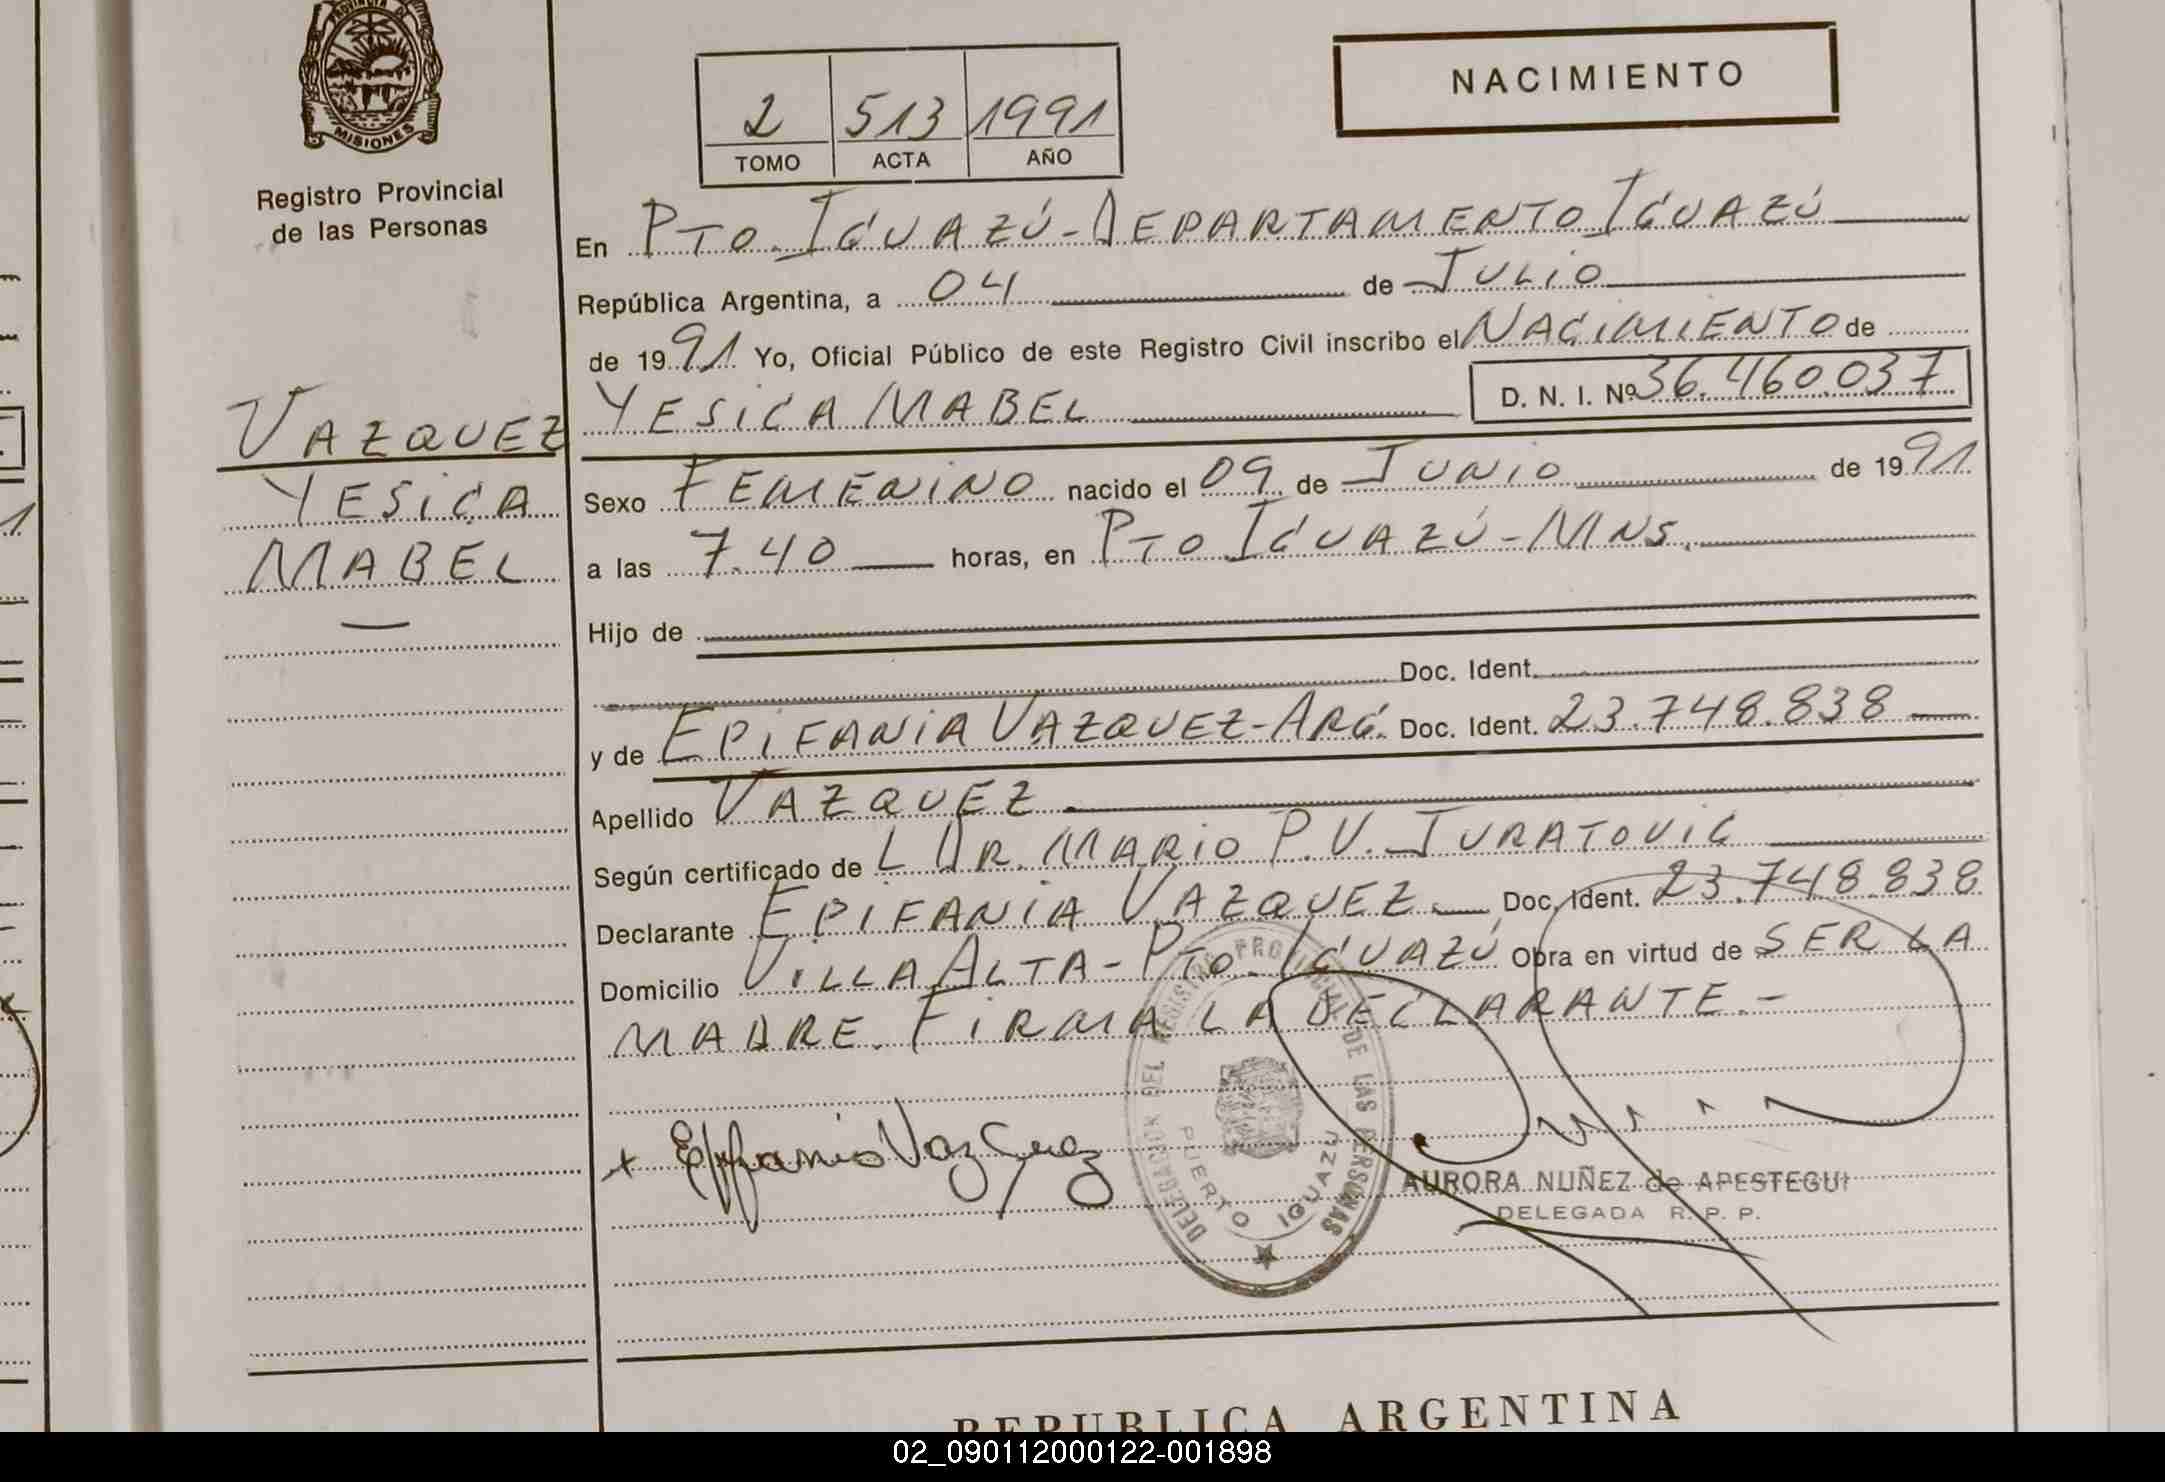 PROVINCIA D
MISIONES
Registro Provincial
de las Personas
VAZQUEZ
YESICA
MABEL
2 513 1991
TOMO ACTA AÑO
NACIMIENTO
En PTO. IGUAZÚ - DEPARTAMENTO IGUAZÚ
República Argentina, a 04 de JULIO
de 1991 Yo, Oficial Público de este Registro Civil inscribo el NACIMIENTO de
YESICA MABEL D. N. I. Nº 36.460.037
Sexo FEMENINO nacido el 09 de JUNIO de 1991
a las 7.40 horas, en PTO IGUAZÚ - MNS.
Hijo de
Doc. Ident.
y de EPIFANIA VAZQUEZ - ARG. Doc. Ident. 23.748.838
Apellido VAZQUEZ
Según certificado de L DR. MARIO P. V. JURATOVIC
Declarante EPIFANIA VAZQUEZ. Doc. Ident. 23.748.838
Domicilio VILLA ALTA - PTO. IGUAZÚ Obra en virtud de SER LA
MADRE. FIRMA LA DECLARANTE.-
x Epifania Vazquez
DELEGACION DEL REGISTRO PROVINCIAL DE LAS PERSONAS
PUERTO IGUAZU
AURORA NUÑEZ de APESTEGUI
DELEGADA R. P. P.
REPUBLICA ARGENTINA
02_090112000122-001898